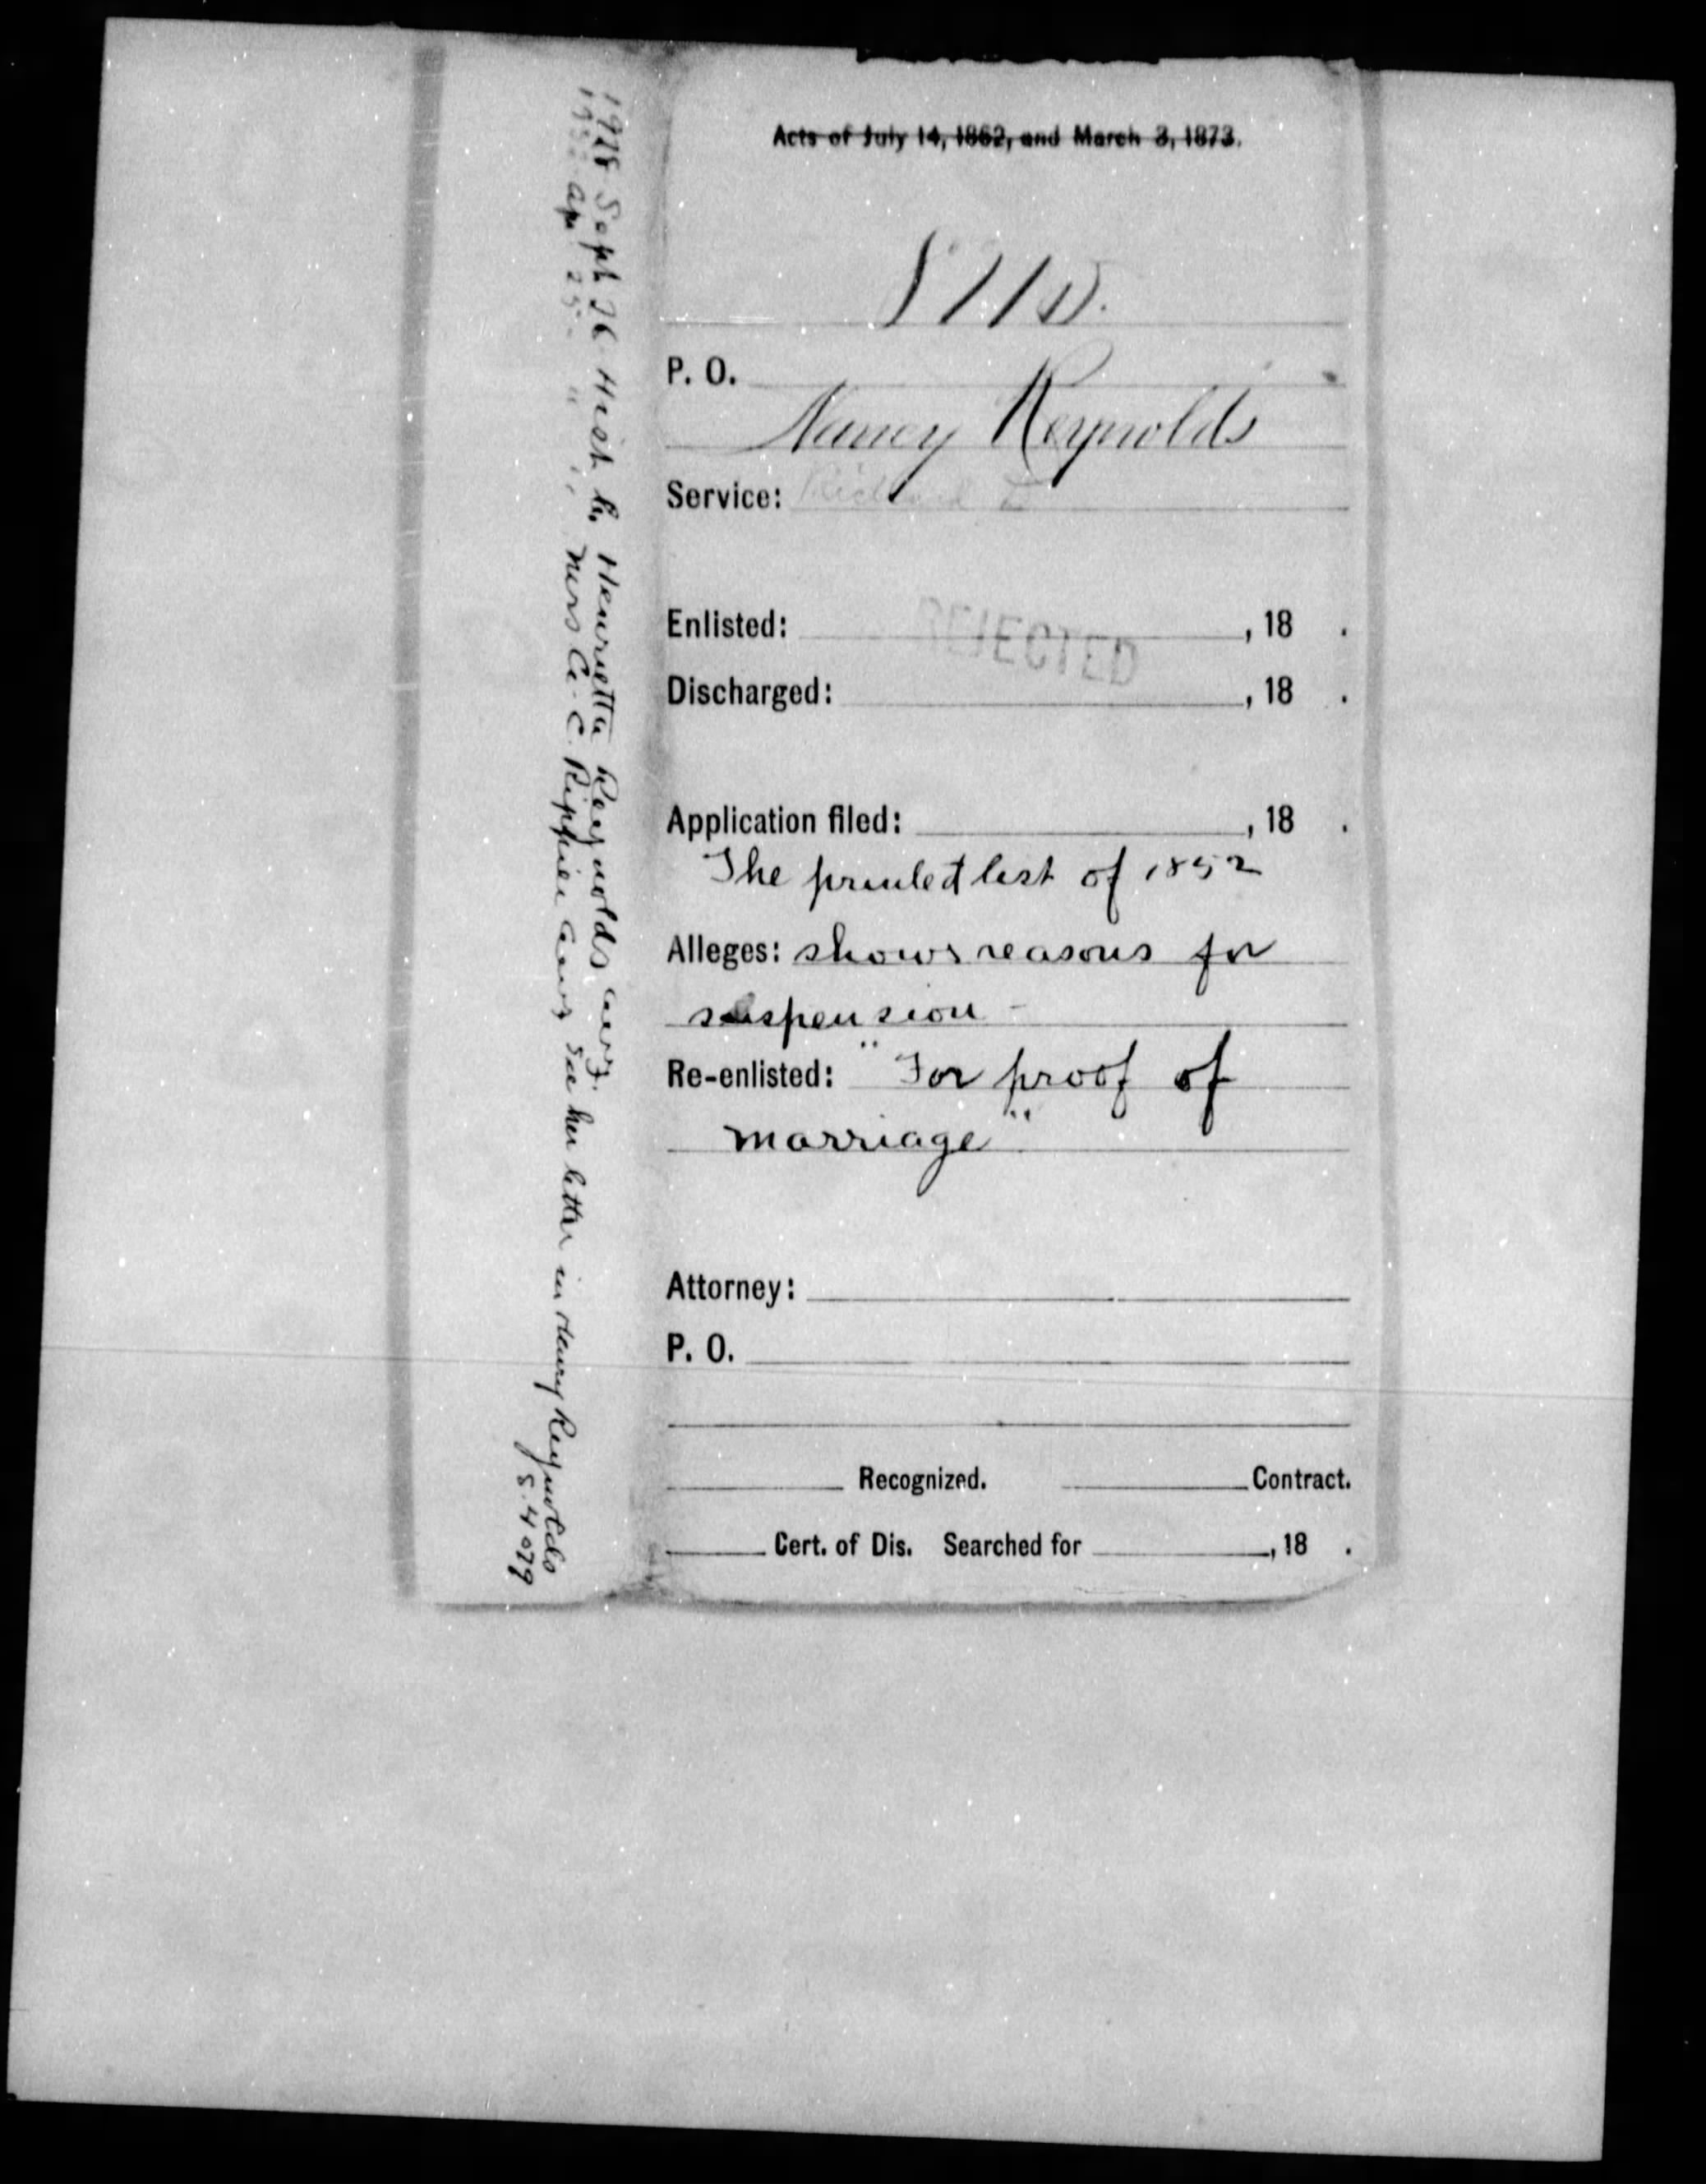 Acts of July 14, 1862, and March 3, 1873.
P. O.
Nancy Reynolds
Service: Richard
REJECTED
Enlisted: , 18 .
Discharged: , 18 .
Application filed: , 18 .
The printed list of 1852
Alleges: shows reasons for
suspension -
Re-enlisted: "For proof of
marriage"
Attorney:
P. O.
Recognized. Contract.
Cert. of Dis. Searched for , 18 .
Sept 26 Hist to Henrietta Reynolds
Apr 25 " " Mrs A. C. see her letter in Henry Reynolds
S. 4079